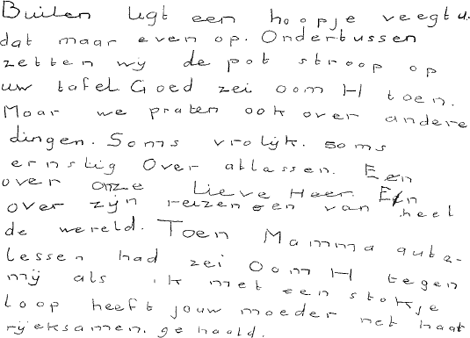 Buiten ligt een hoopje veegt u.
dat maar even op. Ondertussen
zetten wij de pot stroop op
uw tafel Goed zei oom H toen.
Maar we praten ook over andere
dingen. Soms vrolijk. soms
ernstig Over atlassen. Een
over onze Lieve Heer. En
over zijn reizen een van heel
de wereld. Toen Mamma auto-
lessen had zei Oom H tegen
mij als ik met een stokje
loop heeft jouw moeder net haar
rijeksamen. gehaald.